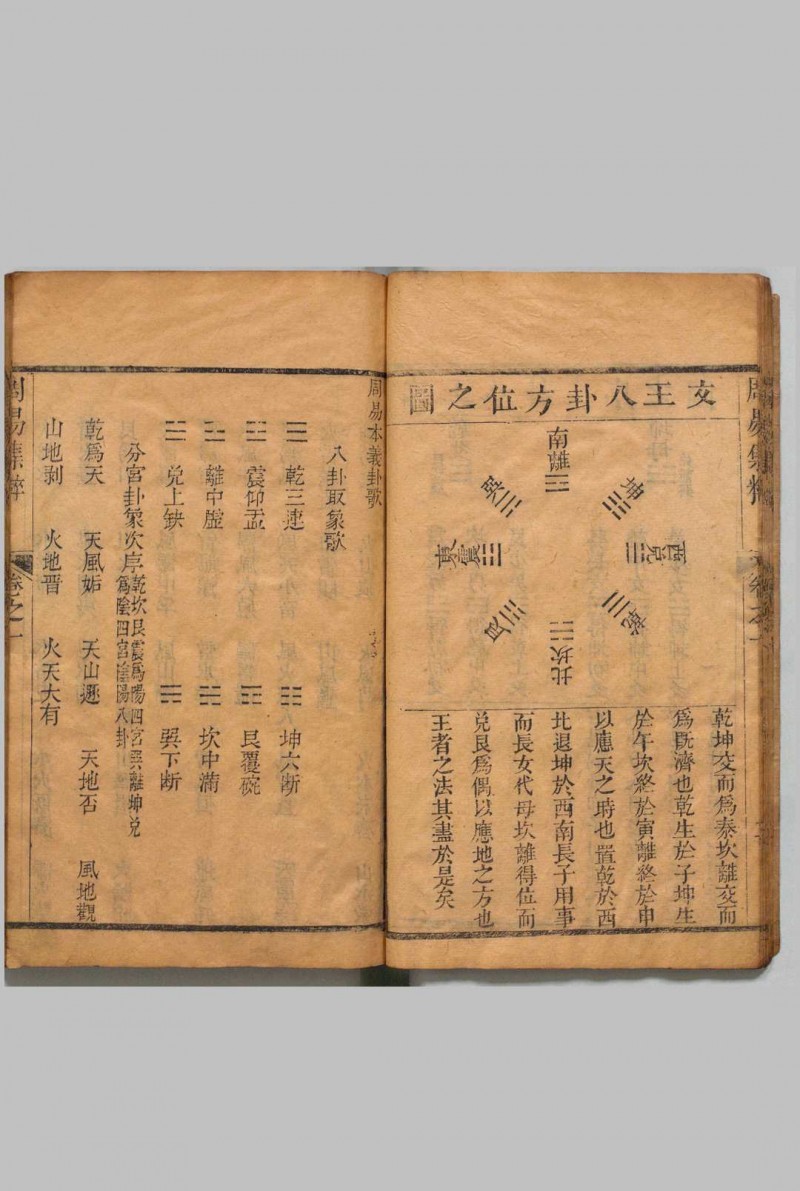 文王八卦方位之圖
南離☲
巽☴
坤☷
東震☳
西兌☱
艮☶
乾☰
北坎☵
乾坤交而爲泰坎離交而
爲旣濟也乾生於子坤生
於午坎終於寅離終於申
以應天之時也置乾於西
北退坤於西南長子用事
而長女代母坎離得位而
兌艮爲偶以應地之方也
王者之法其盡於是矣
周易本義卦歌
八卦取象歌
☰ 乾三連 ☷ 坤六斷
☳ 震仰盂 ☶ 艮覆碗
☲ 離中虛 ☵ 坎中滿
☱ 兌上缺 ☴ 巽下斷
分宮卦象次序 乾坎艮震爲陽四宮巽離坤兌
爲陰四宮陰陽八卦
乾爲天 天風姤 天山遯 天地否 風地觀
山地剥 火地晋 火天大有
周易集粹 卷之一